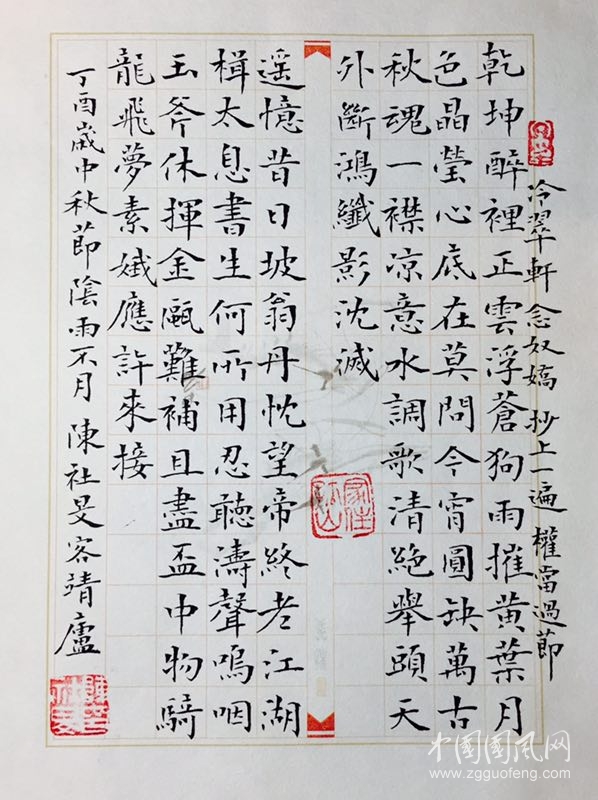 冷翠軒 念奴嬌 抄上一遍 權當過節
乾坤醉裡正雲浮蒼狗雨摧黃葉月
色晶瑩心底在莫問今宵圓缺萬古
秋魂一襟凉意水調歌清絕舉頭天
外斷鴻纖影沈滅
遥憶昔日坡翁丹忱望帝終老江湖
楫太息書生何所用忍聽濤聲嗚咽
玉斧休揮金甌難補且盡盃中物騎
龍飛夢素娥應許來接
丁酉歲中秋節陰雨不月 陳社旻客靖廬
中国国风网
www.zgguofeng.com